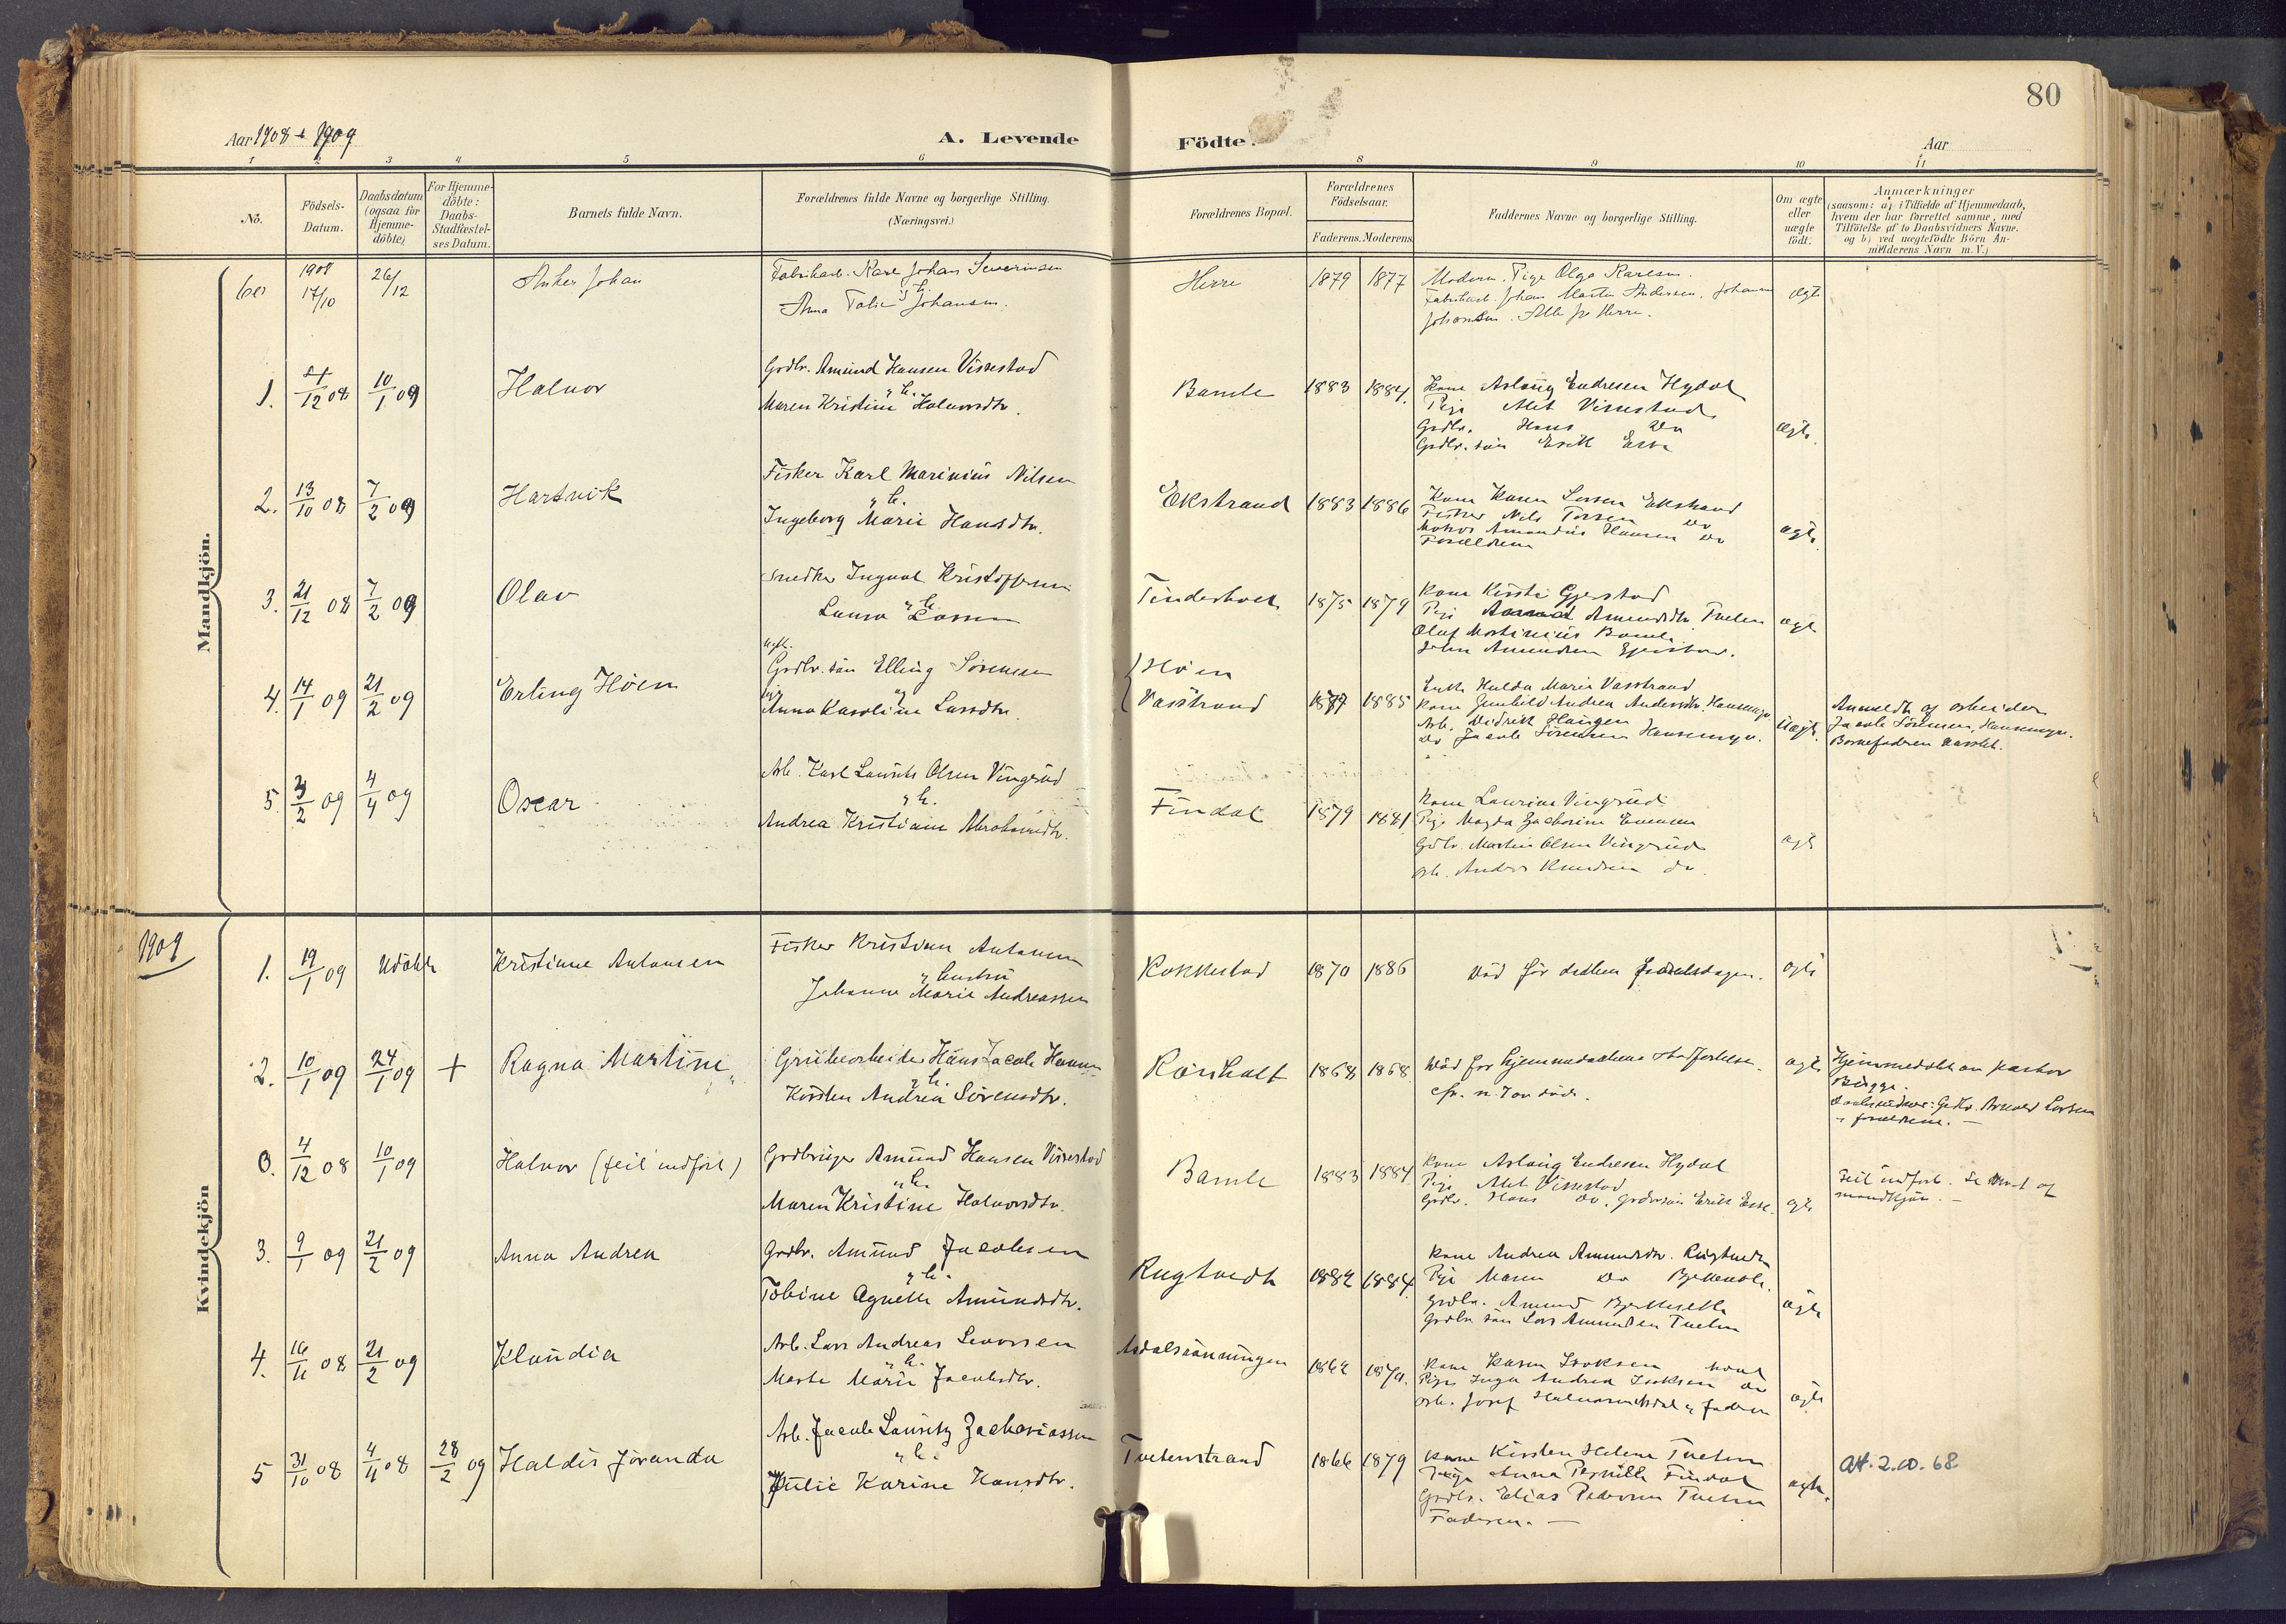 80
Aar 1908 & 1909
A. Levende Födte.
Aar
1 2 3 4 5 6 8 9 10 11
No.
Födsels-Datum.
Daabsdatum (ogsaa for Hjemme-döbte)
For Hjemme-döbte: Daabs-Stadfæstel-ses Datum.
Barnets fulde Navn.
Forældrenes fulde Navne og borgerlige Stilling. (Næringsvei.)
Forældrenes Bopæl.
Forældrenes Födselsaar.
Faderens. Moderens.
Faddernes Navne og borgerlige Stilling.
Om ægte eller uægte født.
Anmærkninger
(saasom: a) i Tilfælde af Hjemmedaab, hvem der har forrettet samme, med Tilföielse af to Daabsvidners Navne. og b) ved uægtefödte Börn An-melderens Navn m.V.)
Mandkjön.
1908 17/10 26/12 Anker Johan
Fabrikarb. Karl Johan Severinsen
Anna Johansen.
Herre 1879 1877
Modern. Pige Olga Karlsen.
Fabrikarb. Johan Martin Andersen, Johannes
Johansen. Alle fr Herre.
ægte
1. 12 08 10/1 09 Halvor
Grdbr. Amund Hansen Vissestad
" h.
Maren Kristine Halvorsdtr.
Bamle 1883 1884.
Kone Aslaug Endresen Hydal
Pige Alet Vissestad
Grdbr. Hans Do
Grdbr. søn Erik
ægte.
2. 13/10 08 7/2 09 Hartvik
Fisker Karl Marinius Nilsen
" h.
Ingeborg Marie Hansdtr.
Ekstrand 1883 1886
Kone Karen Larsen Ekstrand
Fisker Nils Do
Amandus Hansen Do
Forældrene
ægte.
3. 21/12 08 7/2 09 Olav
Snedker Ingval Kristoffersen
" h.
Laura Larsen
Tinderholt 1875 1879
Kone Kirsti Gjerstad
Pige Amundsdtr. Tveten
Olaf Martinius Bamle.
John Amundsen
ægte
4. 14/1 09 21/2 09 Erling Höen
Grdbr. søn Elling Sörensen
og
Anna Karoline Larsdtr.
Höen
Vasstrand 1877 1885
Enke Hulda Marie Vasstrand
Kone Gunhild Andrea Andersdtr. Hansemyr.
Arb. Didrik Haugen
Do Jacob Sörensen Hansemyr.
Uægte.
Anmeldt af arbeider
Jacob Sörensen, Hansemyr.
Barnefaderen
5. 3/2 09 4/4 09 Oscar
Arb. Karl Laurits Olsen Vingrud
" h.
Andrea Kristiane
Findal 1879 1881
Kone Laurine Vingrud
Pige Magda Zachorine
Grdbr. Martin Olsen Vingrud
Arb. Anders Knudsen do.
ægte
1909
Kvindekjön
1. 19/1 09 Udöbt Kristiane Antonsen
Fisker Kristian Antonsen
" hustru
Johanne Marie Andreassen
Rokkestad 1870 1886
Död för daaben födselsdagen.
ægte
2. 10/1 09 24/1 09 + Ragna Martine
Grubearbeider Hans Jacob Hansen
" h.
Kirsten Andrea Sörensdtr.
Rönholt 1868 1868
Död for hjemmedaabens stadfæstelse.
cfr. n. 7 av döde.
ægte
Hjemmedöbt av pastor
Bugge.
Daabsvidner: Grdbr. Larsen
& forældrene. —
0. 4/12 08 10/1 09 Halvor (feil indfört)
Grdbruger Amund Hansen Vissestad
" h.
Maren Kristine Halvorsdtr.
Bamle 1883 1884
Kone Aslaug Endresen Hydal
Pige Alet Vissestad
Grdbr. Hans Do, grdbrsøn Erik
ægte
Feil indfört. Se No 1 af
mandkjön. —
3. 9/1 09 21/2 09 Anna Andrea
Grdbr. Amund Jacobsen
" h.
Tobine Agnette Amundsdtr.
Rugtvedt 1882 1884
Kone Andrea Amundsdtr. Rugtvedt
Pige Maren Do
Grdbr. Amund
Grdbr. søn Lars Amundsen Tveten
ægte
4. 16/11 08 21/2 09 Klaudia
Arb. Lars Andreas Levorsen
" h.
Marte Marie Jacobsdtr.
1862 1870.
Kone Karen Isaksen
Pige Inga Andrea Isaksen Do
Arb. Josef Halvorsen & faderen
ægte
5 31/10 08 4/11 08 28/2 09 Haldis Jöranda
Arb. Jacob Lauritz Zachariassen
" h.
Julie Karine Hansdtr.
Tvetenstrand 1866 1879
Kone Kirsten Helene Tveten
Pige Anna Pernille Findal
Grdbr. Elias Pedersen Tveten
Faderen. —
ægte.
Att. 2.10.68